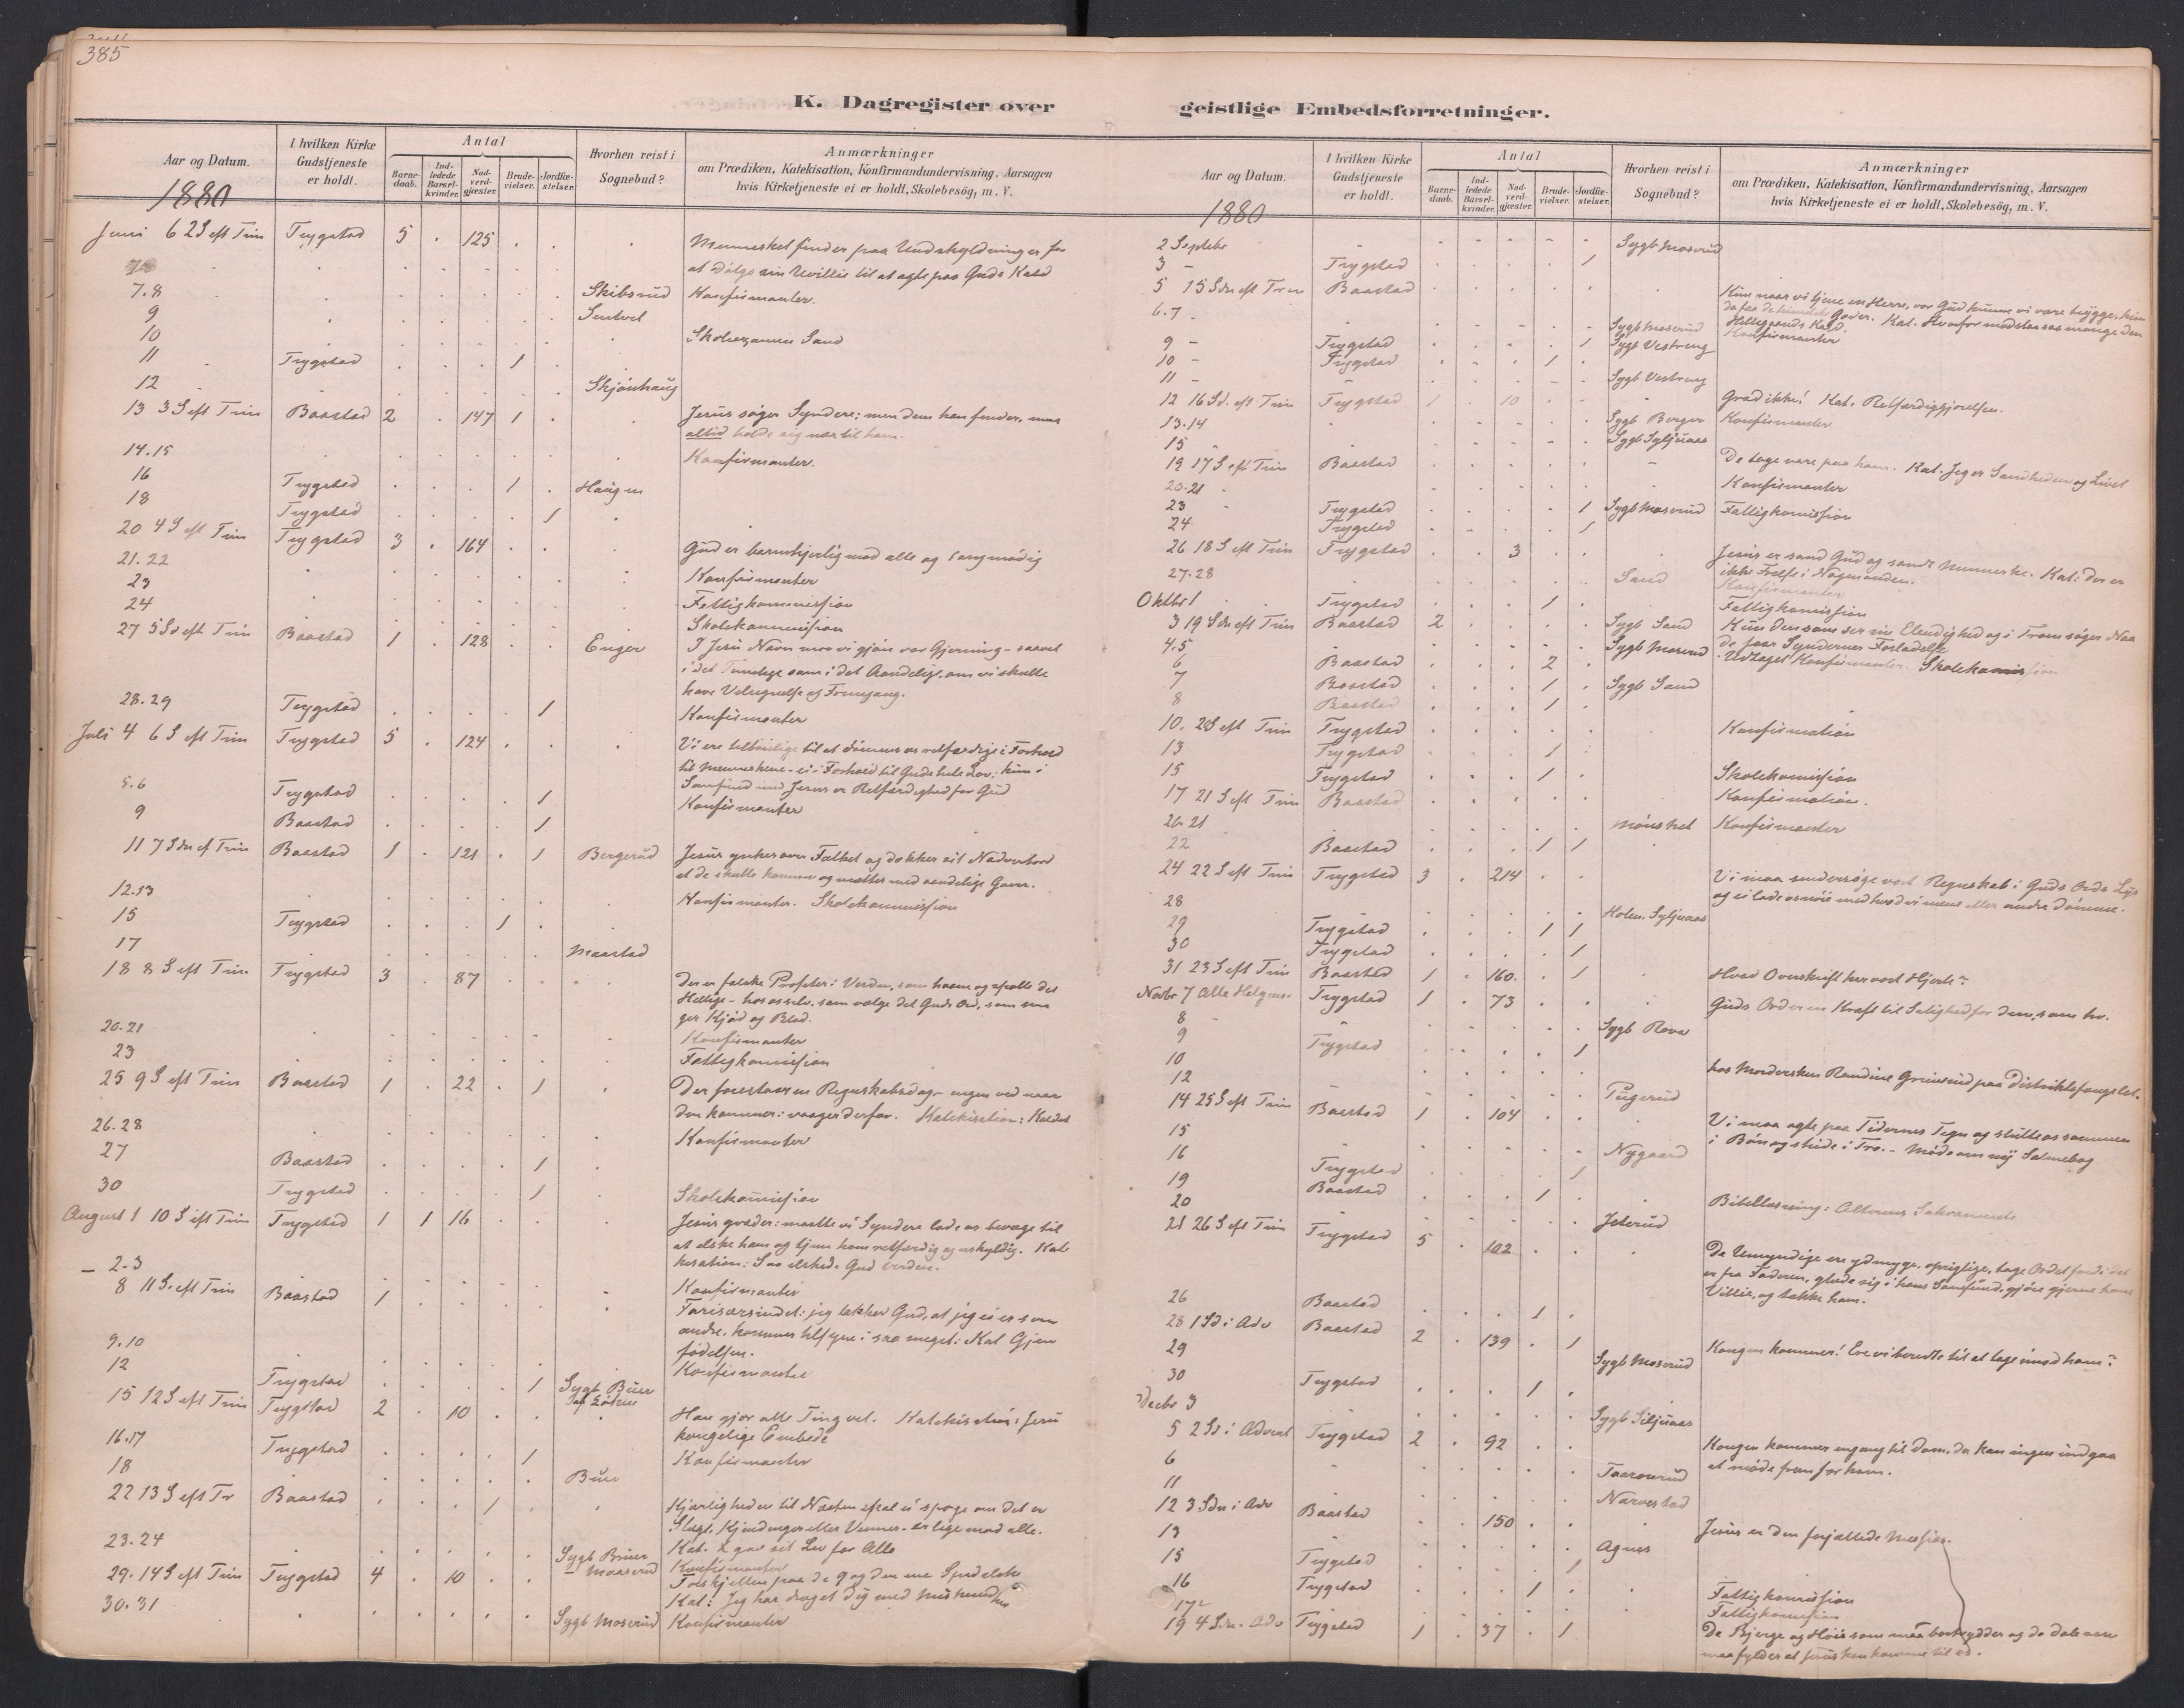 385
K. Dagregister over
Aar og Datum.
I hvilken Kirke Gudstjeneste er holdt.
Antal
Barne-daab.
Ind-ledede Barsel-kvinder.
Nad-verd-gjæster.
Brude-vielser.
Jordfæ-stelser.
Hvorhen reist i Sognebud?
Anmærkninger
om Prædiken, Katekisation, Konfirmandundervisning, Aarsagen
hvis Kirketjeneste ei er holdt, Skolebesög, m. V.
1880
Juni 6 2 S eft Trin Trygstad 5 . 125 . . . Mennesket finder paa Undskyldninger for
at dølge sin Uvillie til at agte paa Guds Kald
7.8 Skibsrud Konfirmanter.
9
10 Skoleexamen Sand
11 Trygstad 1
12 Skjønhaug
13 3 S eft Trin Baastad 2 . 147 1 . Jesus søger Syndere: men dem han finder, maa
altid holde sig nær til ham.
14.15 Konfirmanter.
16 Trygstad 1 . Haugen
18 Trygstad 1
20 4 S eft Trin Trygstad 3 . 164 . . Gud er barmhjertig mod alle og langmødig
21.22 Konfirmanter
23 Fattigkommission
24 Skolekommission
27 5 Sd eft Trin Baastad 1 . 128 . . Enger I Jesu Navn maa vi gjøre vor Gjerning - saavel
i det Timelige som i det Aandelig, om vi skulle
have Velsignelse og Fremgang.
28.29 Trygstad 1 Konfirmanter
Juli 4 6 S eft Trin Trygstad 5 . 124 . . . Vi ere tilbøielige til at dømme os retfærdige i Forhold
til Menneskene - ei i Forhold til Guds hele Lov: kun i
Samfund med Jesus er Retfærdighed for Gud
5.6 Trygstad 1 Konfirmanter
9 Baastad 1
11 7 Sdn ef Trin Baastad 1 . 121 . 1 Bergerud Jesus ynkes over Folket og dækker sit Nadverbord
at de skulle komme og mættes med aandelige Gaver.
12.13 Konfirmanter. Skolekommission
15 Trygstad 1
17 Maastad
18 8 S eft Trin Trygstad 3 . 87 . . . Der er falske Profeter i Verden, som haane og spotte det
Hellige - hos os selv, som vælge det Guds Ord, som sma
ger Kjød og Blod.
20.21 Konfirmanter
23 Fattigkomission
25 9 S eft Trin Baastad 1 . 22 . 1 . Der forestaar en Regnskabsdag - ingen ved naar
den kommer: vaager derfor. Katekisation: Kaldet
26.28 Konfirmanter
27 Baastad 1
30 Trygstad 1 Skolekomission
August 1 10 S eft Trin Trygstad 1 1 16 . . Jesus græder: maatte vi Syndere lade os bevæge til
at elske ham og tjene ham retfærdig og uskyldig. Kate
kesation: Saa elskede Gud Verden.
2-3 Konfirmanter
8 11 S. eft Trin Baastad 1 Farisæersindet: jeg takker Gud, at jeg ei er som
andre, kommer tilsyne i saa meget: Kat Gjen
fødelsen.
9.10 Konfirmanter
12 Trygstad 1 Sygb Buer
15 12 S eft Trin Trygstad 2 . 10 . . . Han gjør alle Ting vel. Katekisation: Jesu
kongelige Embede
16.17 Trygstad 1 Konfirmanter
18 Buer
22 13 S eft Tr Baastad 1 . Kjærligheden til Næsten skal ei spørge om det er
Slægt, Kjendinger eller Venner - er lige mod alle.
23.24 Kat. X gav sit Lev for Alle
Sygb Buer
Maaserud Konfirmanter
29. 14 S eft Trin Trygstad 4 . 10 . . Forskjellen paa de 9 og den ene Spedalske
Kat: Jeg har draget dig med Miskundhed
30.31 Sygb Moserud Konfirmanter
geistlige Embedsforretninger.
Aar og Datum.
I hvilken Kirke Gudstjeneste er holdt.
Antal
Barne-daab.
Ind-ledede Barsel-kvinder.
Nad-verd-gjæster.
Brude-vielser.
Jordfæ-stelser.
Hvorhen reist i Sognebud?
Anmærkninger
om Prædiken, Katekisation, Konfirmandundervisning, Aarsagen
hvis Kirketjeneste ei er holdt, Skolebesög, m. V.
1880
2 Septebr Sygb Moserud
3 - Trygstad 1
5 15 Sdn eft Trin Baastad Kun naar vi tjene en Herre, vor Gud kunne vi være trygge, kun
da faa de himmelske Gaver. Kat. Hvorfor modstaa saa mange den
Helligaands Kald.
6.7 - Sygb Moserud Konfirmanter
9 - Trygstad 1 Sygb Vestreng
10 - Trygstad 1
11 - Sygb Vestreng
12 16 Sd. eft Trin Trygstad 1 . 10 Græd ikke! Kat. Retfærdiggjørelsen.
13.14 Sygb Berger Konfirmanter
15 Sygb Syljuaas
19 17 S eft Trin Baastad De tage vare paa ham. Kat. Jeg er Sandheden og Livet
20.21 Konfirmanter
23 Trygstad 1 Sygb Moserud Fattigkomission
24 Trygstad 1
26 18 S eft Trin Trygstad . . 3 Jesus er sand Gud og sandt Menneske. Kat: Der er
ikke Frelse i Nogen anden.
27.28 Sand Konfirmanter
Oktbr 1 Trygstad 1 Fattigkomission
3 19 Sdn eft Trin Baastad 2 Sygb Sand Kun den som ser sin Elendighed og i Troen søger Naa
de faar Syndernes Forladelse
4.5 Sygb Moserud Udtaget Konfirmanter. Skolekomission
6 Baastad 2
7 Baastad 1 Sygb Sand
8 Baastad 1
10. 20 S eft Trin Trygstad Konfirmation
13 Trygstad 1
15 Trygstad 1 Skolekomission
17 21 S eft Trin Baastad Konfirmation.
20-21 Mønskel Konfirmanter
22 Baastad 1 1
24 22 S eft Trin Trygstad 3 . 214 Vi maa undersøge vort Regnskab i Guds Ords Lys
og ei lade os nøie med hvad vi mene eller andre dømme.
28 Holm. Syljuaas
29 Trygstad 1 1
30 Trygstad 1
31 23 S eft Trin Baastad 1 . 160. . 1 Hvad Overskrift har vort Hjerte?
Novbr 7 Alle Helgens Trygstad 1 . 73 Guds Ord er en Kraft til Salighed for dem, som tro.
8 Sygb Rova
9 Trygstad 1
10 hos Mordersken Randine Grimsrud paa Distriktsfængslet.
12 Pugerud
14 25 S eft Trin Baastad 1 . 104 Vi maa agte paa Tidernes Tegn og slutte os sammen
i Bøn og stride i Tro. - Møde om ny Salmebog
15 Nygaard
16 Trygstad 1
19 Baastad 1
20 Jeterud Bibellæsning: Alterens Sakramente
21 26 S eft Trin Trygstad 5 . 102 De Umyndige ere ydmyge, oprigtige, tage Ordet fordi det
er fra Faderen, glæde sig i hans Samfund, gjøre gjerne hans
Villie, og takke ham.
26 Baastad 1
28 1 Sd i Adv Baastad 2 . 139 . 1 Kongen kommer! Ere vi beredte til at tage imod ham?
29 Sygb Moserud
30 Trygstad 1
Decbr 3 Sygb Siljuaas
5 2 Sd i Advent Trygstad 2 . 92 Kongen kommer engang til Dom, da kan ingen undgaa
at møde frem for ham.
6 Taaronrud
11 Narvestad
12 3 Sdn i Adv Baastad 150 Jesus er den forjættede Messias.
13 Agnes
15 Trygstad 1
16 Trygstad 1 Fattigkomission
17 Fattigkomission
19 4 Sdn. Adv Trygstad 1 . 37 . 1 De Bjerge og Høie som maa bortrydder og de Dale som
maa fyldes at Jesus kan komme til os.